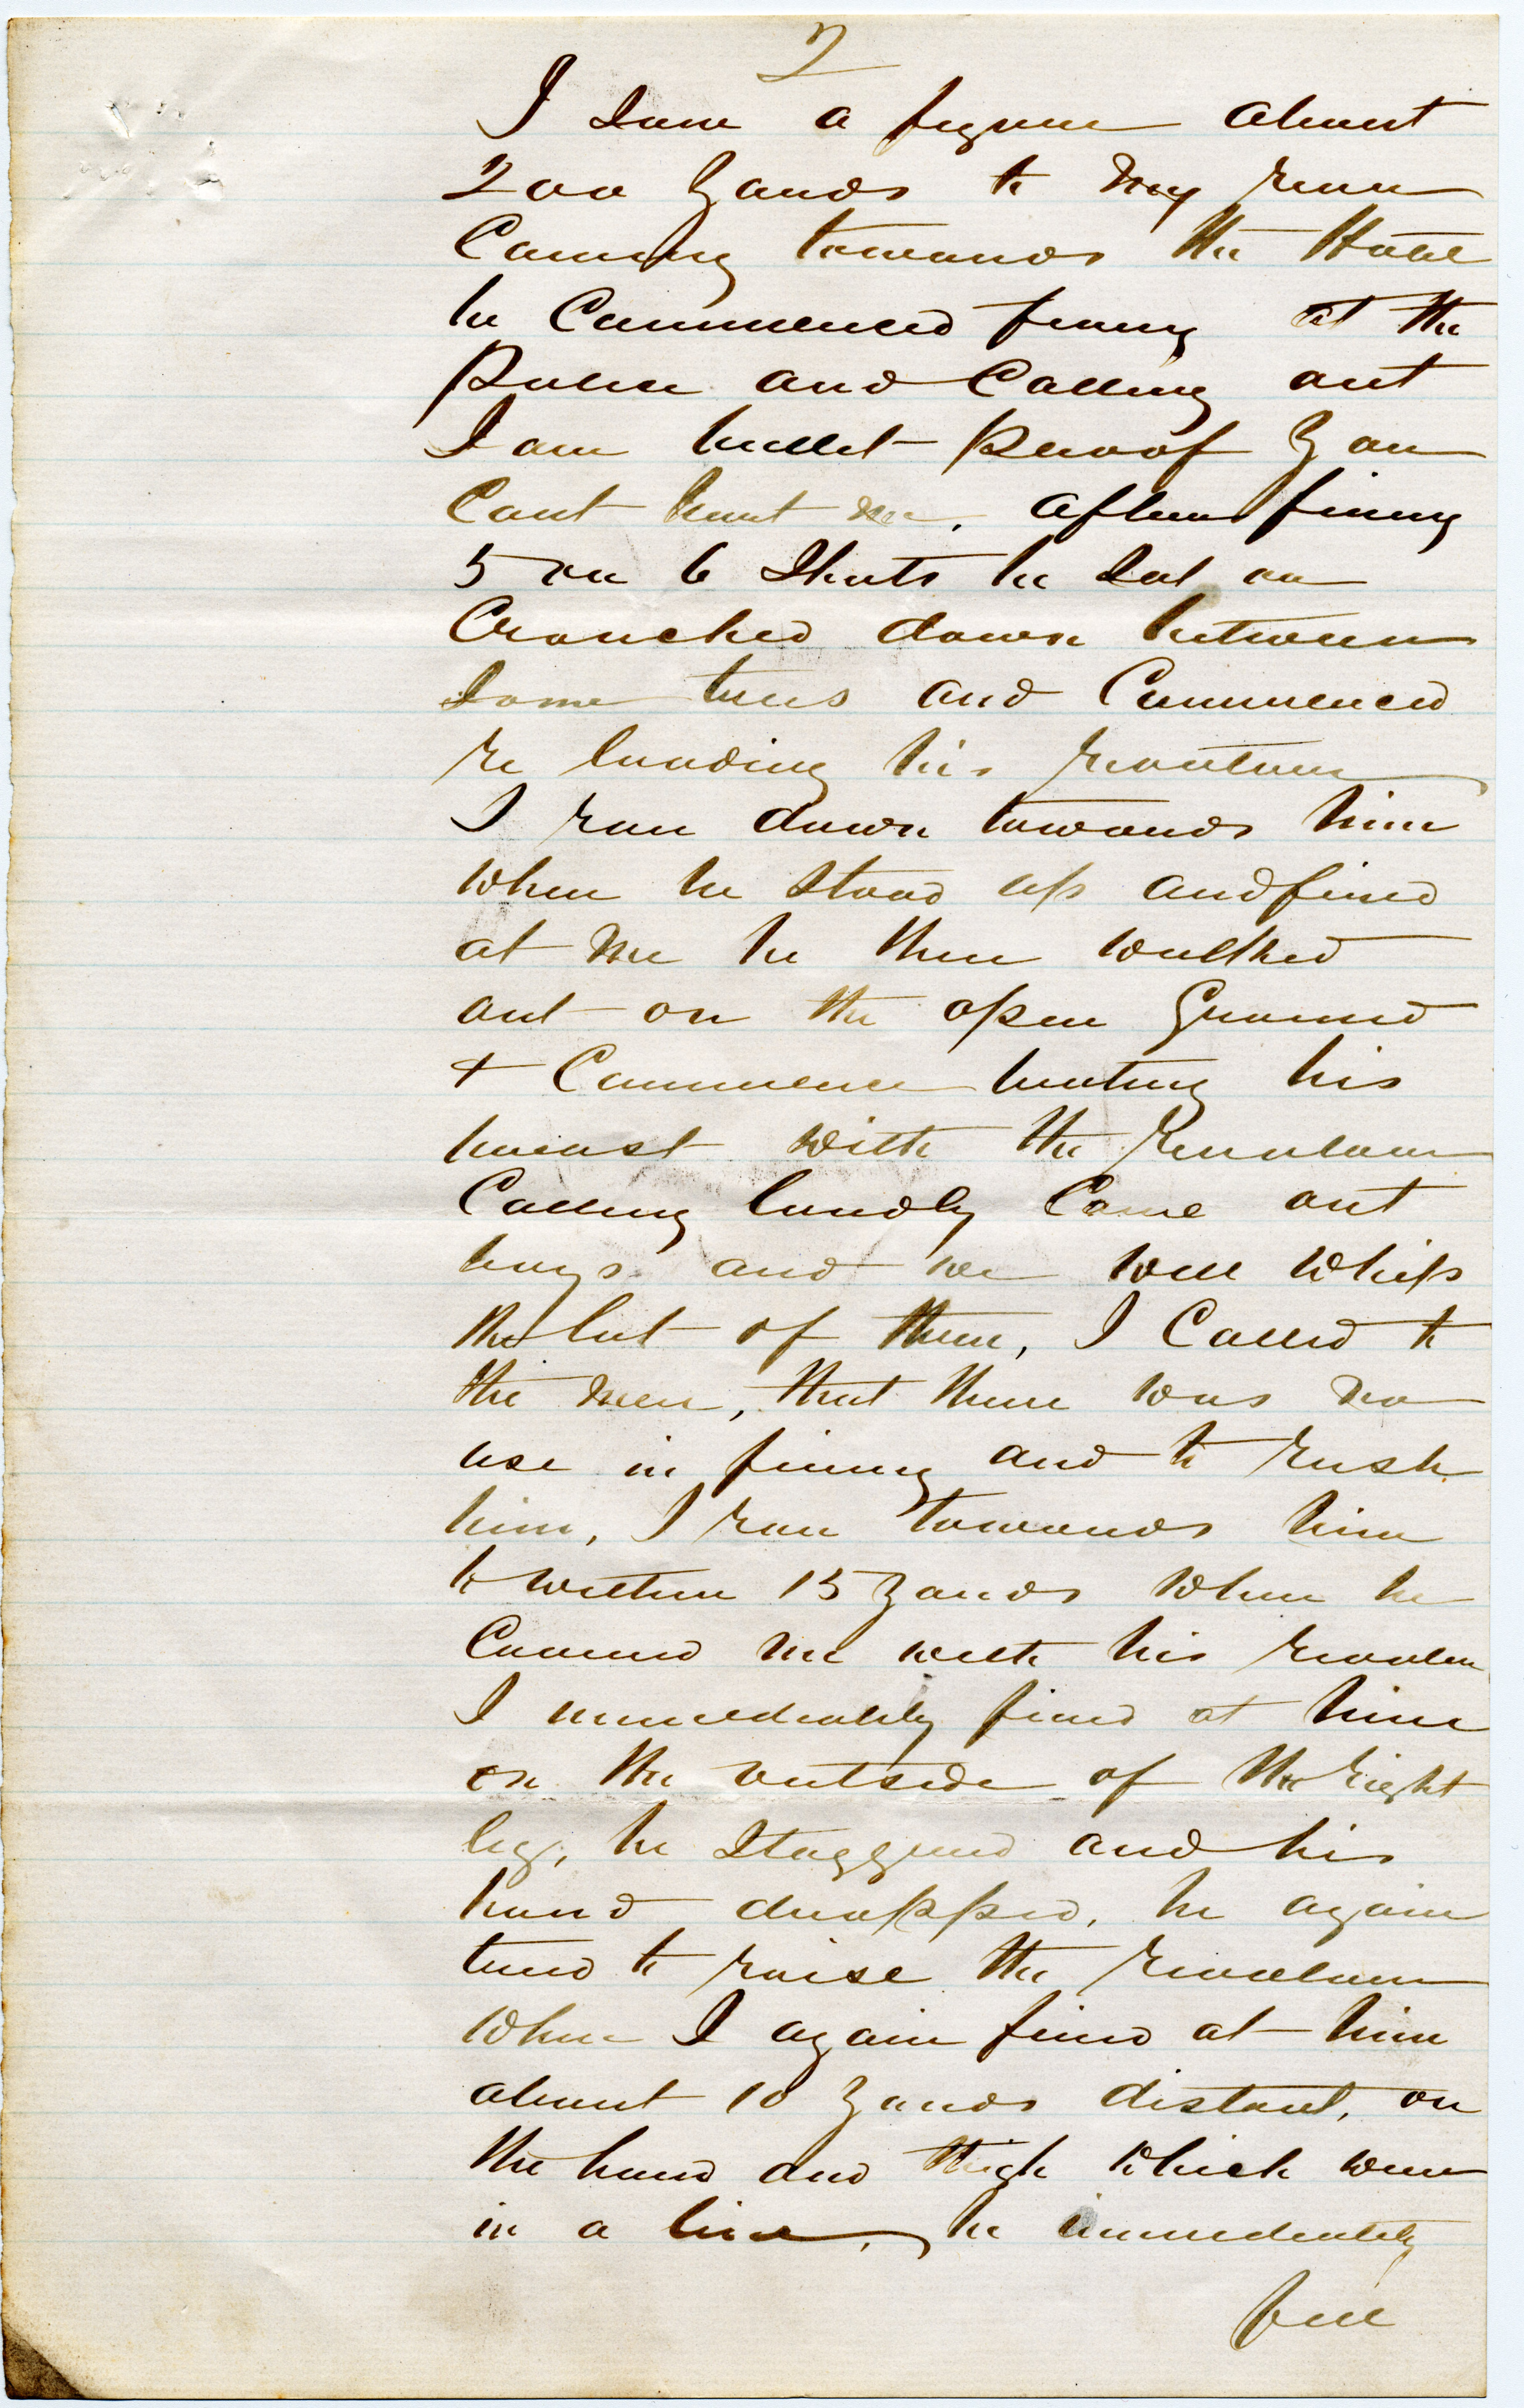 2
I saw a figure about
200 yards to my rear
Coming towards the Hotel
he Commenced firing at the
Police and Calling out
I am bullet proof You
Cant hurt me. after firing
5 or 6 Shots he Sat or
Crouched down between
Some trees and Commenced
re loading his revolver
I ran down towards him
when he Stood up and fired
at me he then walked
out on the open Ground
& Commence beating his
breast with the revolver
Calling loudly Come out
boys and we will whip
the lot of them, I Called to
the men, that there was no
use in firing and to rush
him, I ran towards him
to within 15 yards when he
Covered me with his revolver
I immediately fired at him
on the outside of the right
leg, he Staggered and his
hand dropped, he again
tried to raise the revolver
when I again fired at him
about 10 yards distant, on
the hand and thigh which were
in a line, he immediately
fell